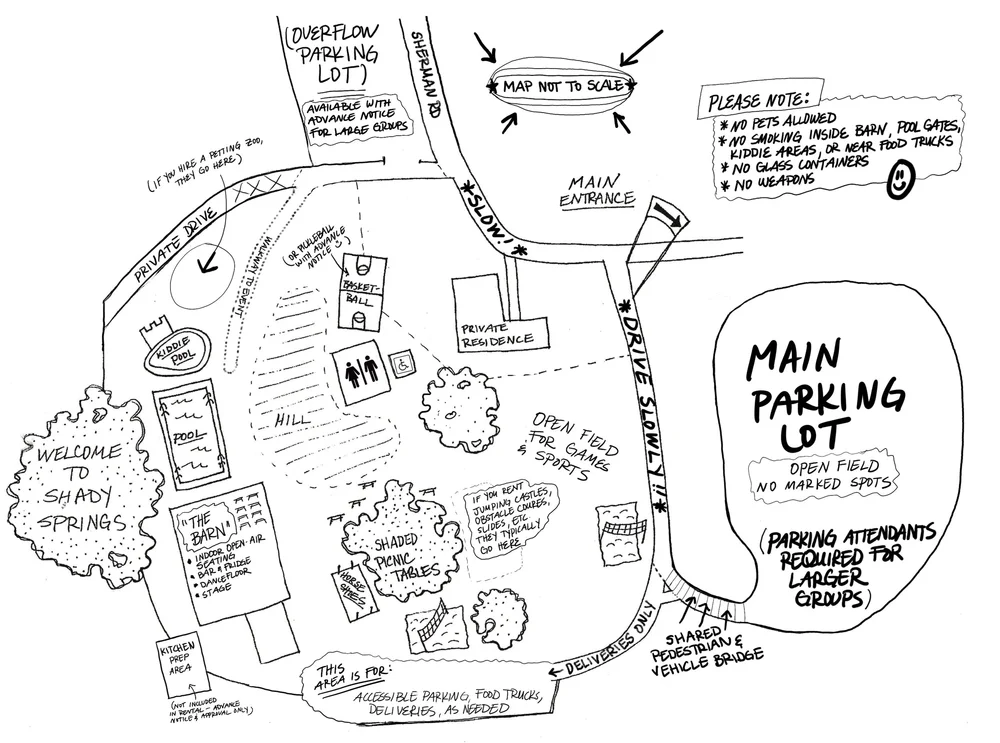 (OVERFLOW
PARKING
LOT)
AVAILABLE WITH
ADVANCE NOTICE
FOR LARGE GROUPS
SHERMAN RD
MAP NOT TO SCALE
PLEASE NOTE:
* NO PETS ALLOWED
* NO SMOKING INSIDE BARN, POOL GATES,
KIDDIE AREAS, OR NEAR FOOD TRUCKS
* NO GLASS CONTAINERS
* NO WEAPONS
(IF YOU HIRE A PETTING ZOO,
THEY GO HERE)
PRIVATE DRIVE
WALKWAY TO EVENT
*SLOW!*
MAIN
ENTRANCE
(OR PICKLEBALL
WITH ADVANCE
NOTICE :)
BASKET-
BALL
PRIVATE
RESIDENCE
*DRIVE SLOWLY!!*
KIDDIE
POOL
POOL
HILL
OPEN FIELD
FOR GAMES
& SPORTS
MAIN
PARKING
LOT
OPEN FIELD
NO MARKED SPOTS
(PARKING ATTENDANTS
REQUIRED FOR
LARGER
GROUPS)
WELCOME
TO
SHADY
SPRINGS
"THE
BARN"
• INDOOR OPEN-AIR
SEATING
• BAR & FRIDGE
• DANCEFLOOR
• STAGE
SHADED
PICNIC
TABLES
IF YOU RENT
JUMPING CASTLES,
OBSTACLE COURES,
SLIDES, ETC
THEY TYPICALLY
GO HERE
HORSE
SHOES
KITCHEN
PREP
AREA
(NOT INCLUDED
IN RENTAL - ADVANCE
NOTICE & APPROVAL ONLY)
THIS
AREA IS FOR:
ACCESSIBLE PARKING, FOOD TRUCKS,
DELIVERIES, AS NEEDED
← DELIVERIES ONLY
SHARED
PEDESTRIAN &
VEHICLE BRIDGE